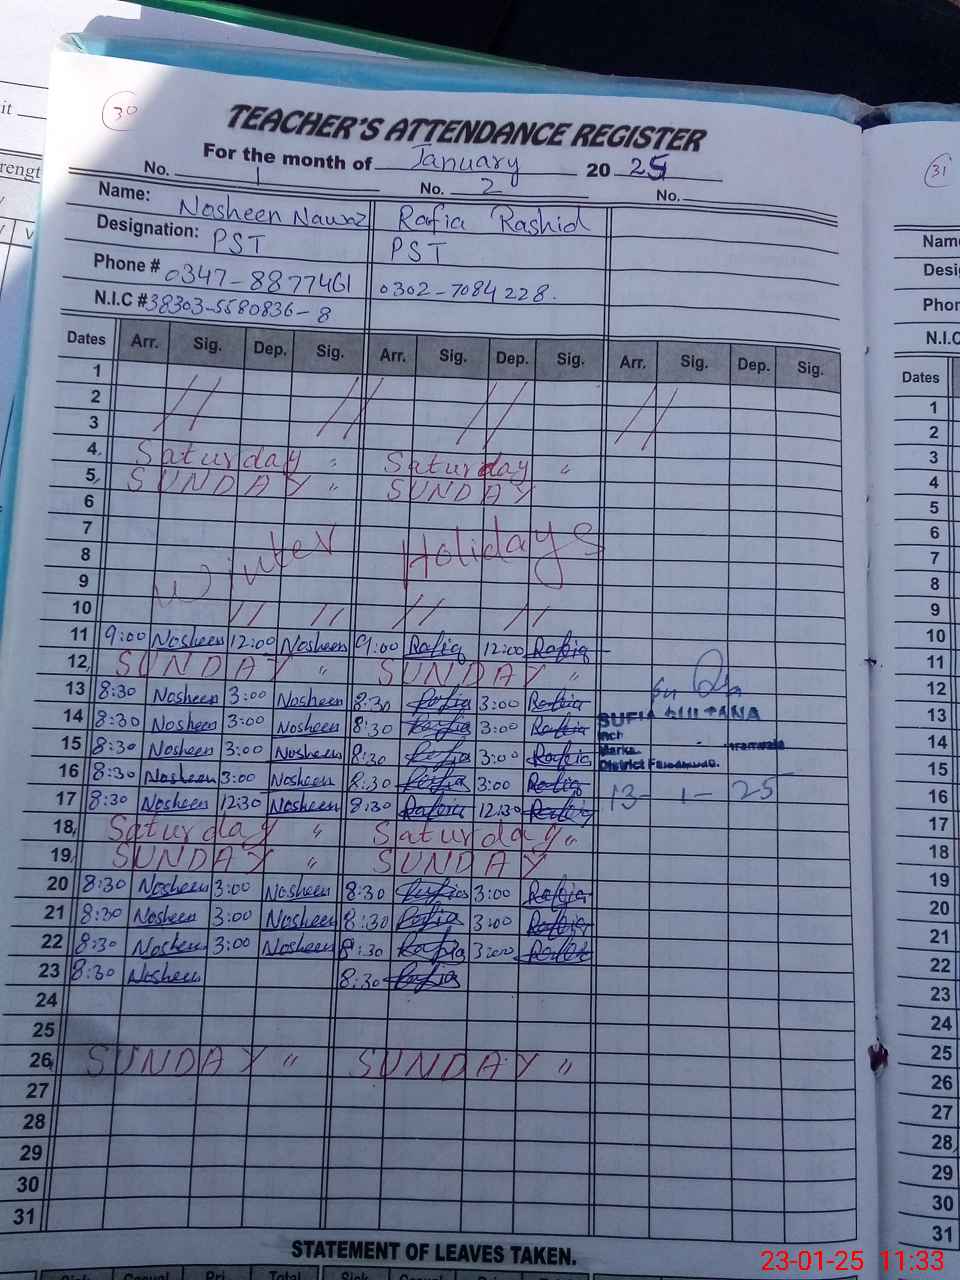 30
TEACHER'S ATTENDANCE REGISTER
For the month of January 2025
No. 1 No. 2 No.
Name: Nosheen Nawaz Rafia Rashid
Designation: PST PST
Phone # 0347-8877461 0302-7084228.
N.I.C # 38303-5580836-8
Dates Arr. Sig. Dep. Sig. Arr. Sig. Dep. Sig. Arr. Sig. Dep. Sig.
1
2 // // // //
3
4 Saturday " Saturday "
5 SUNDAY " SUNDAY
6
7
8 Winter Holidays
9
10 // // // //
11 9:00 Nosheen 12:00 Nosheen 9:00 Rafia 12:00 Rafia
12 SUNDAY " SUNDAY "
13 8:30 Nosheen 3:00 Nosheen 8:30 Rafia 3:00 Rafia
14 8:30 Nosheen 3:00 Nosheen 8:30 Rafia 3:00 Rafia
15 8:30 Nosheen 3:00 Nosheen 8:30 Rafia 3:00 Rafia
16 8:30 Nosheen 3:00 Nosheen 8:30 Rafia 3:00 Rafia
17 8:30 Nosheen 12:30 Nosheen 8:30 Rafia 12:30 Rafia
18 Saturday " Saturday "
19 SUNDAY " SUNDAY
20 8:30 Nosheen 3:00 Nosheen 8:30 Rafia 3:00 Rafia
21 8:30 Nosheen 3:00 Nosheen 8:30 Rafia 3:00 Rafia
22 8:30 Nosheen 3:00 Nosheen 8:30 Rafia 3:00 Rafia
23 8:30 Nosheen 8:30 Rafia
24
25
26 SUNDAY " SUNDAY "
27
28
29
30
31
SUFIA SULTANA
Marka
District
13-1-25
STATEMENT OF LEAVES TAKEN.
31
Name
Desi
Phon
N.I.C
Dates
1
2
3
4
5
6
7
8
9
10
11
12
13
14
15
16
17
18
19
20
21
22
23
24
25
26
27
28
29
30
31
23-01-25 11:33